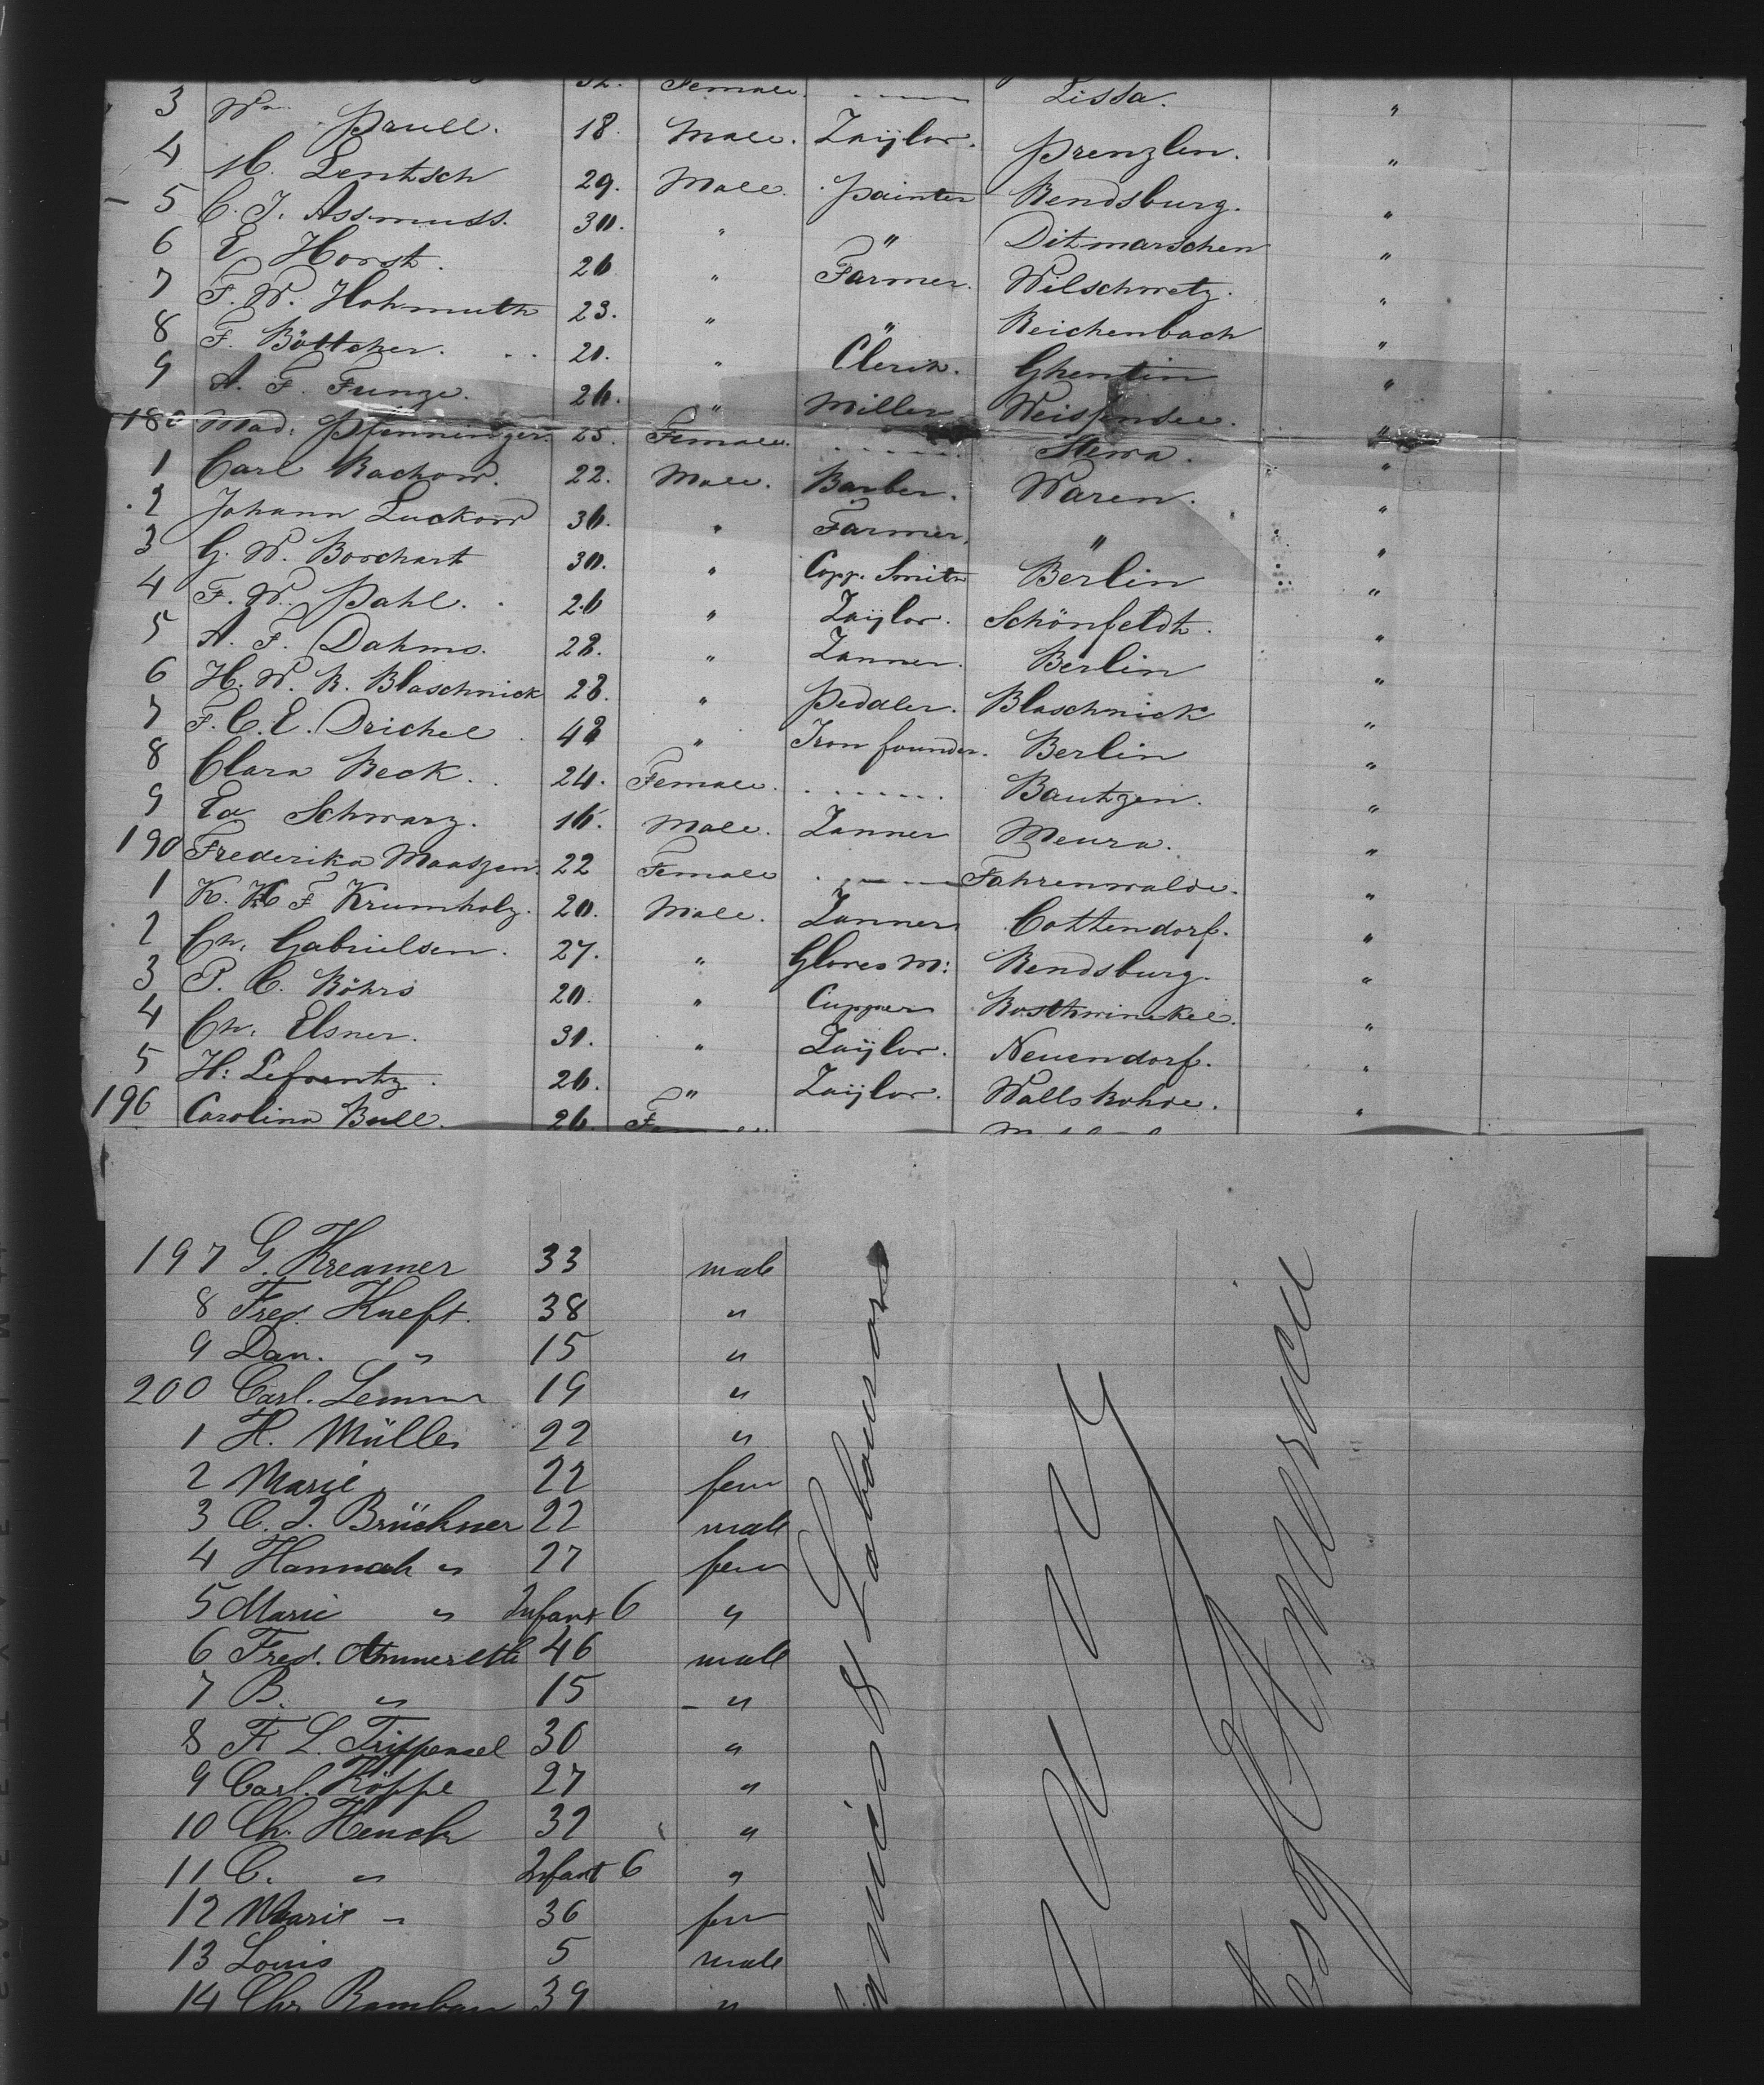 32. Female. Lissa. "
3 Wm. Prull. 18. Male. Taÿlor. Prenzlen. "
4 M. Lentsch 29. Male. Painter Rendsburg. "
5 C. J. Assmuss. 30. " " Ditmarschen "
6 E Horst. 26 " Farmer. Wilschwetz. "
7 F. W. Hohmuth 23. " " Reichenbach "
8 F. Böttcher. 20. " Clerik. Ghentin "
9 A. F. Funge. 26. " Miller Weissensee. "
180 Mad: Pfenninger. 25. Female. Sterra. "
1 Carl Rachow. 22. Male. Barber. Waren. "
2 Johann Luckow 36. " Farmer. " "
3 G. W. Borchart 30. " Copp. Smith Berlin "
4 F. W. Pahl. 26 " Taÿlor. Schönfeldt. "
5 A. F. Dahms. 28. " Tanner. Berlin "
6 H. W. R. Blaschnick 28. " Pedaler. Blaschnick "
7 F. C. E. Drichel 42 " Iron founder. Berlin "
8 Clara Beck. 24. Female. Bautzen. "
9 Ed Schwarz. 16. Male. Tanner Meura. "
190 Frederika Maaszen. 22 Female Fahrenwalde. "
1 K. F Krumholz. 20. Male. Tanner Cottendorf. "
2 Ch. Gabrielsen. 27. " Gloves M: Rendsburg. "
3 P. C. Röhrs 20. " Cupper Rosthwinekel. "
4 Ch. Elsner. 31. " Taÿlor. Neuendorf. "
5 H: Lefrentz. 26. " Taÿlor. Walls Rohde. "
196 Carolina Bull. 26.
197 G. Kreamer 33 male
8 Fred. Kneft. 38 "
9 Dan. " 15 "
200 Carl. Lemm 19 "
1 H. Müller 22 "
2 Marie 22 fem
3 C. J. Brückner 22 male
4 Hannah " 27 fem
5 Marie " Infant 6 "
6 Fred. 46 male
7 B. " 15 "
8 F. L. Trippensel 30 "
9 Carl. Köppe 27 "
10 Ch. Henck 32 "
11 C. " Infant 6 "
12 Marie " 36 fem
13 Louis 5 male
14 Chr Rambau 39 "
& Labourors
America